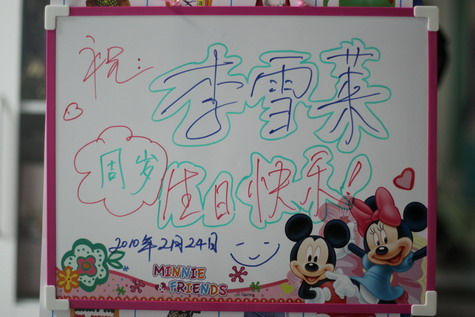 祝:
李雪莱
周岁
生日快乐!
2010年2月24日
MINNIE
FRIENDS